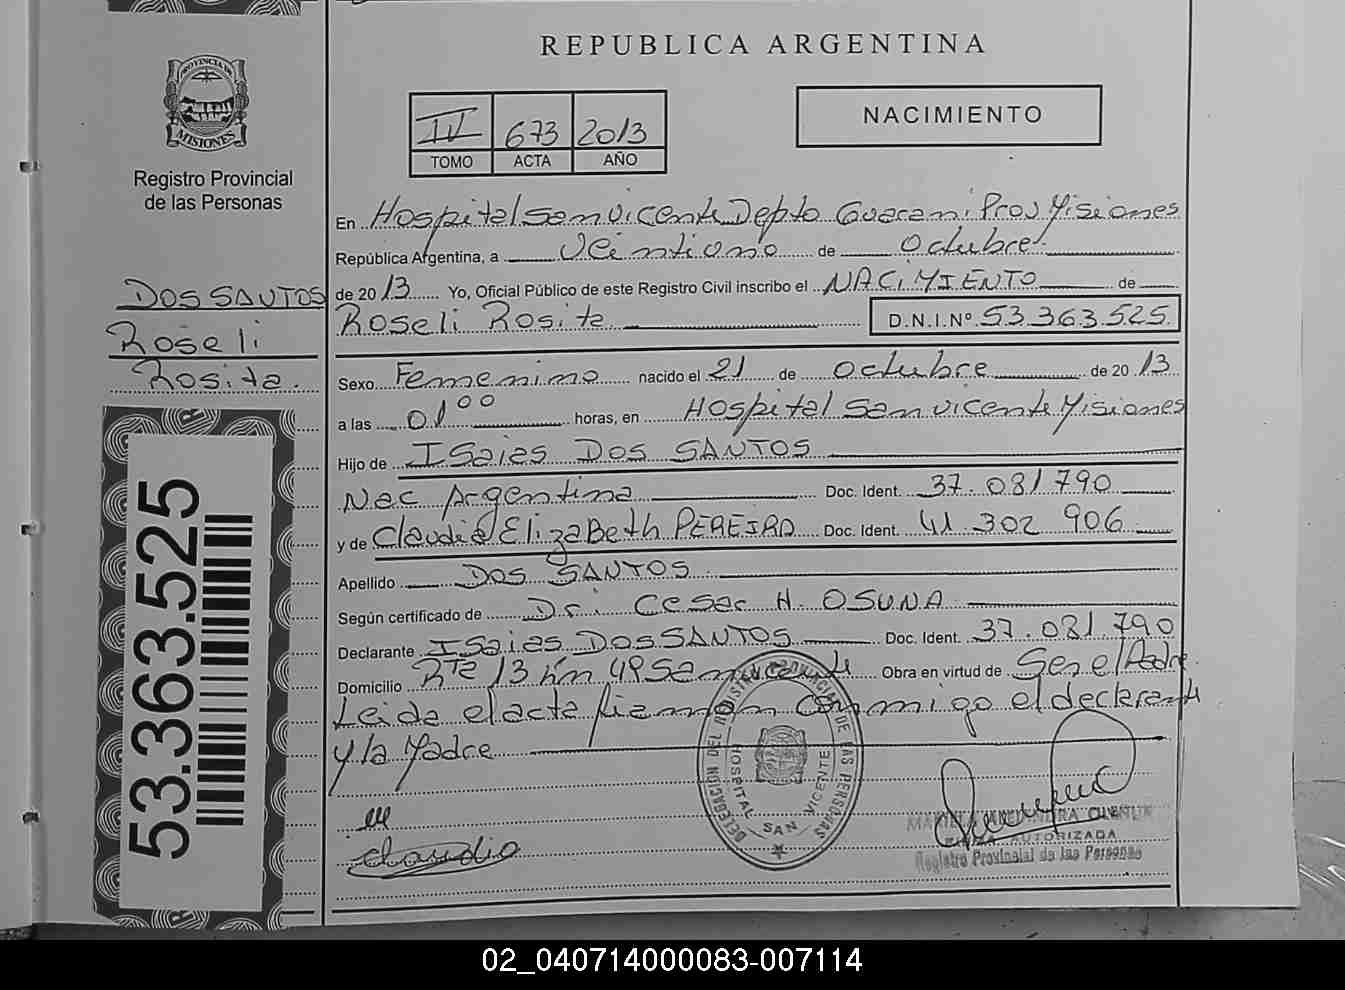 REPUBLICA ARGENTINA
PROVINCIA DE
MISIONES
Registro Provincial
de las Personas
IV 673 2013
TOMO ACTA AÑO
NACIMIENTO
En Hospital San Vicente Depto Guarani Prov Misiones
República Argentina, a Veintiuno de Octubre
de 2013 Yo, Oficial Público de este Registro Civil inscribo el NACIMIENTO de
Roseli Rosita D.N.I.Nº 53.363.525
DOS SANTOS
Roseli
Rosita.
Sexo Femenino nacido el 21 de Octubre de 2013
a las 01 00 horas, en Hospital San Vicente Misiones
Hijo de Isaias DOS SANTOS
Nac Argentina Doc. Ident. 37.081790
y de Claudia Elizabeth PEREIRA Doc. Ident. 41.302 906
Apellido DOS SANTOS
Según certificado de Dr. Cesar H. OSUNA
Declarante Isaias DOS SANTOS Doc. Ident. 37.081.790
Domicilio Rta 13 Km 49 San Vicente Obra en virtud de Ser el Padre
Leida el acta firman conmigo el declarante
y la Madre
53.363.525
claudia
DELEGACION DEL REGISTRO PROVINCIAL DE LAS PERSONAS
HOSPITAL SAN VICENTE
AUTORIZADA
Registro Provincial de las Personas
02_040714000083-007114